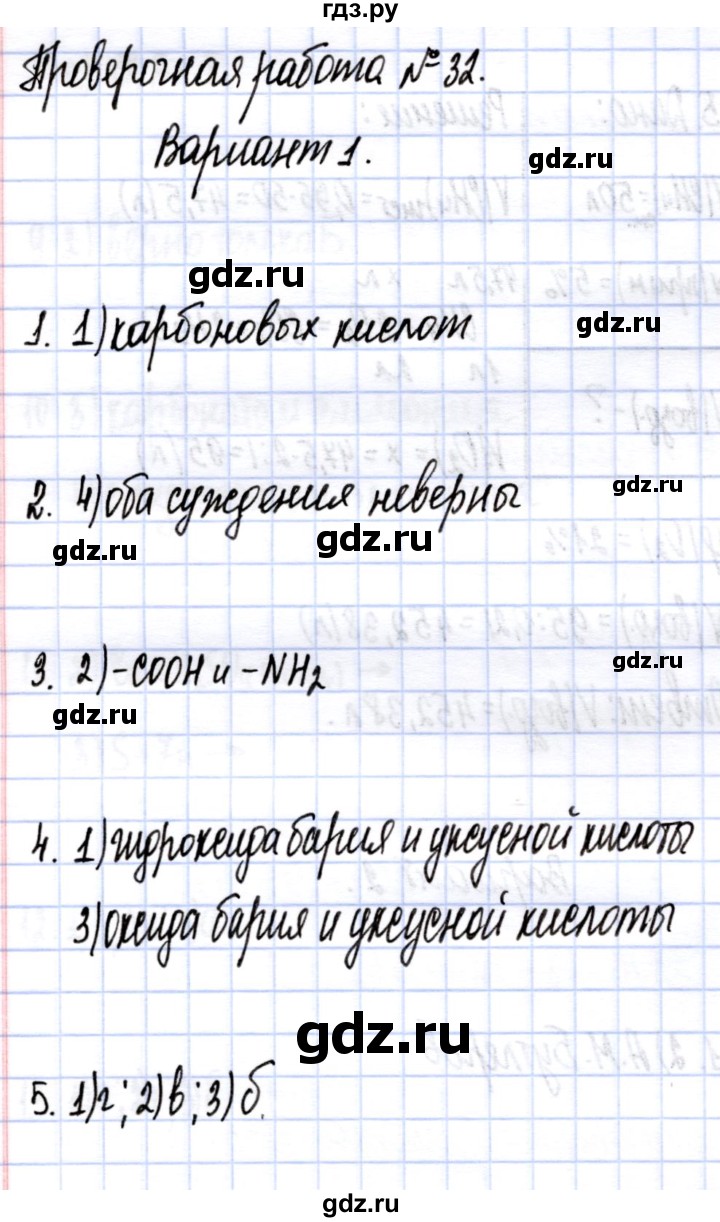 гдз.ру
Проверочная работа №32.
Вариант 1.
gdz.ru
gdz.ru
1. 1) карбоновых кислот
gdz.ru
2. 4) оба суждения неверны
gdz.ru
gdz.ru
gdz.ru
3. 2) -COOH и -NH2
gdz.ru
gdz.ru
4. 1) гидроксида бария и уксусной кислоты
3) оксида бария и уксусной кислоты
gdz.ru
5. 1) г; 2) в; 3) б.
gdz.ru